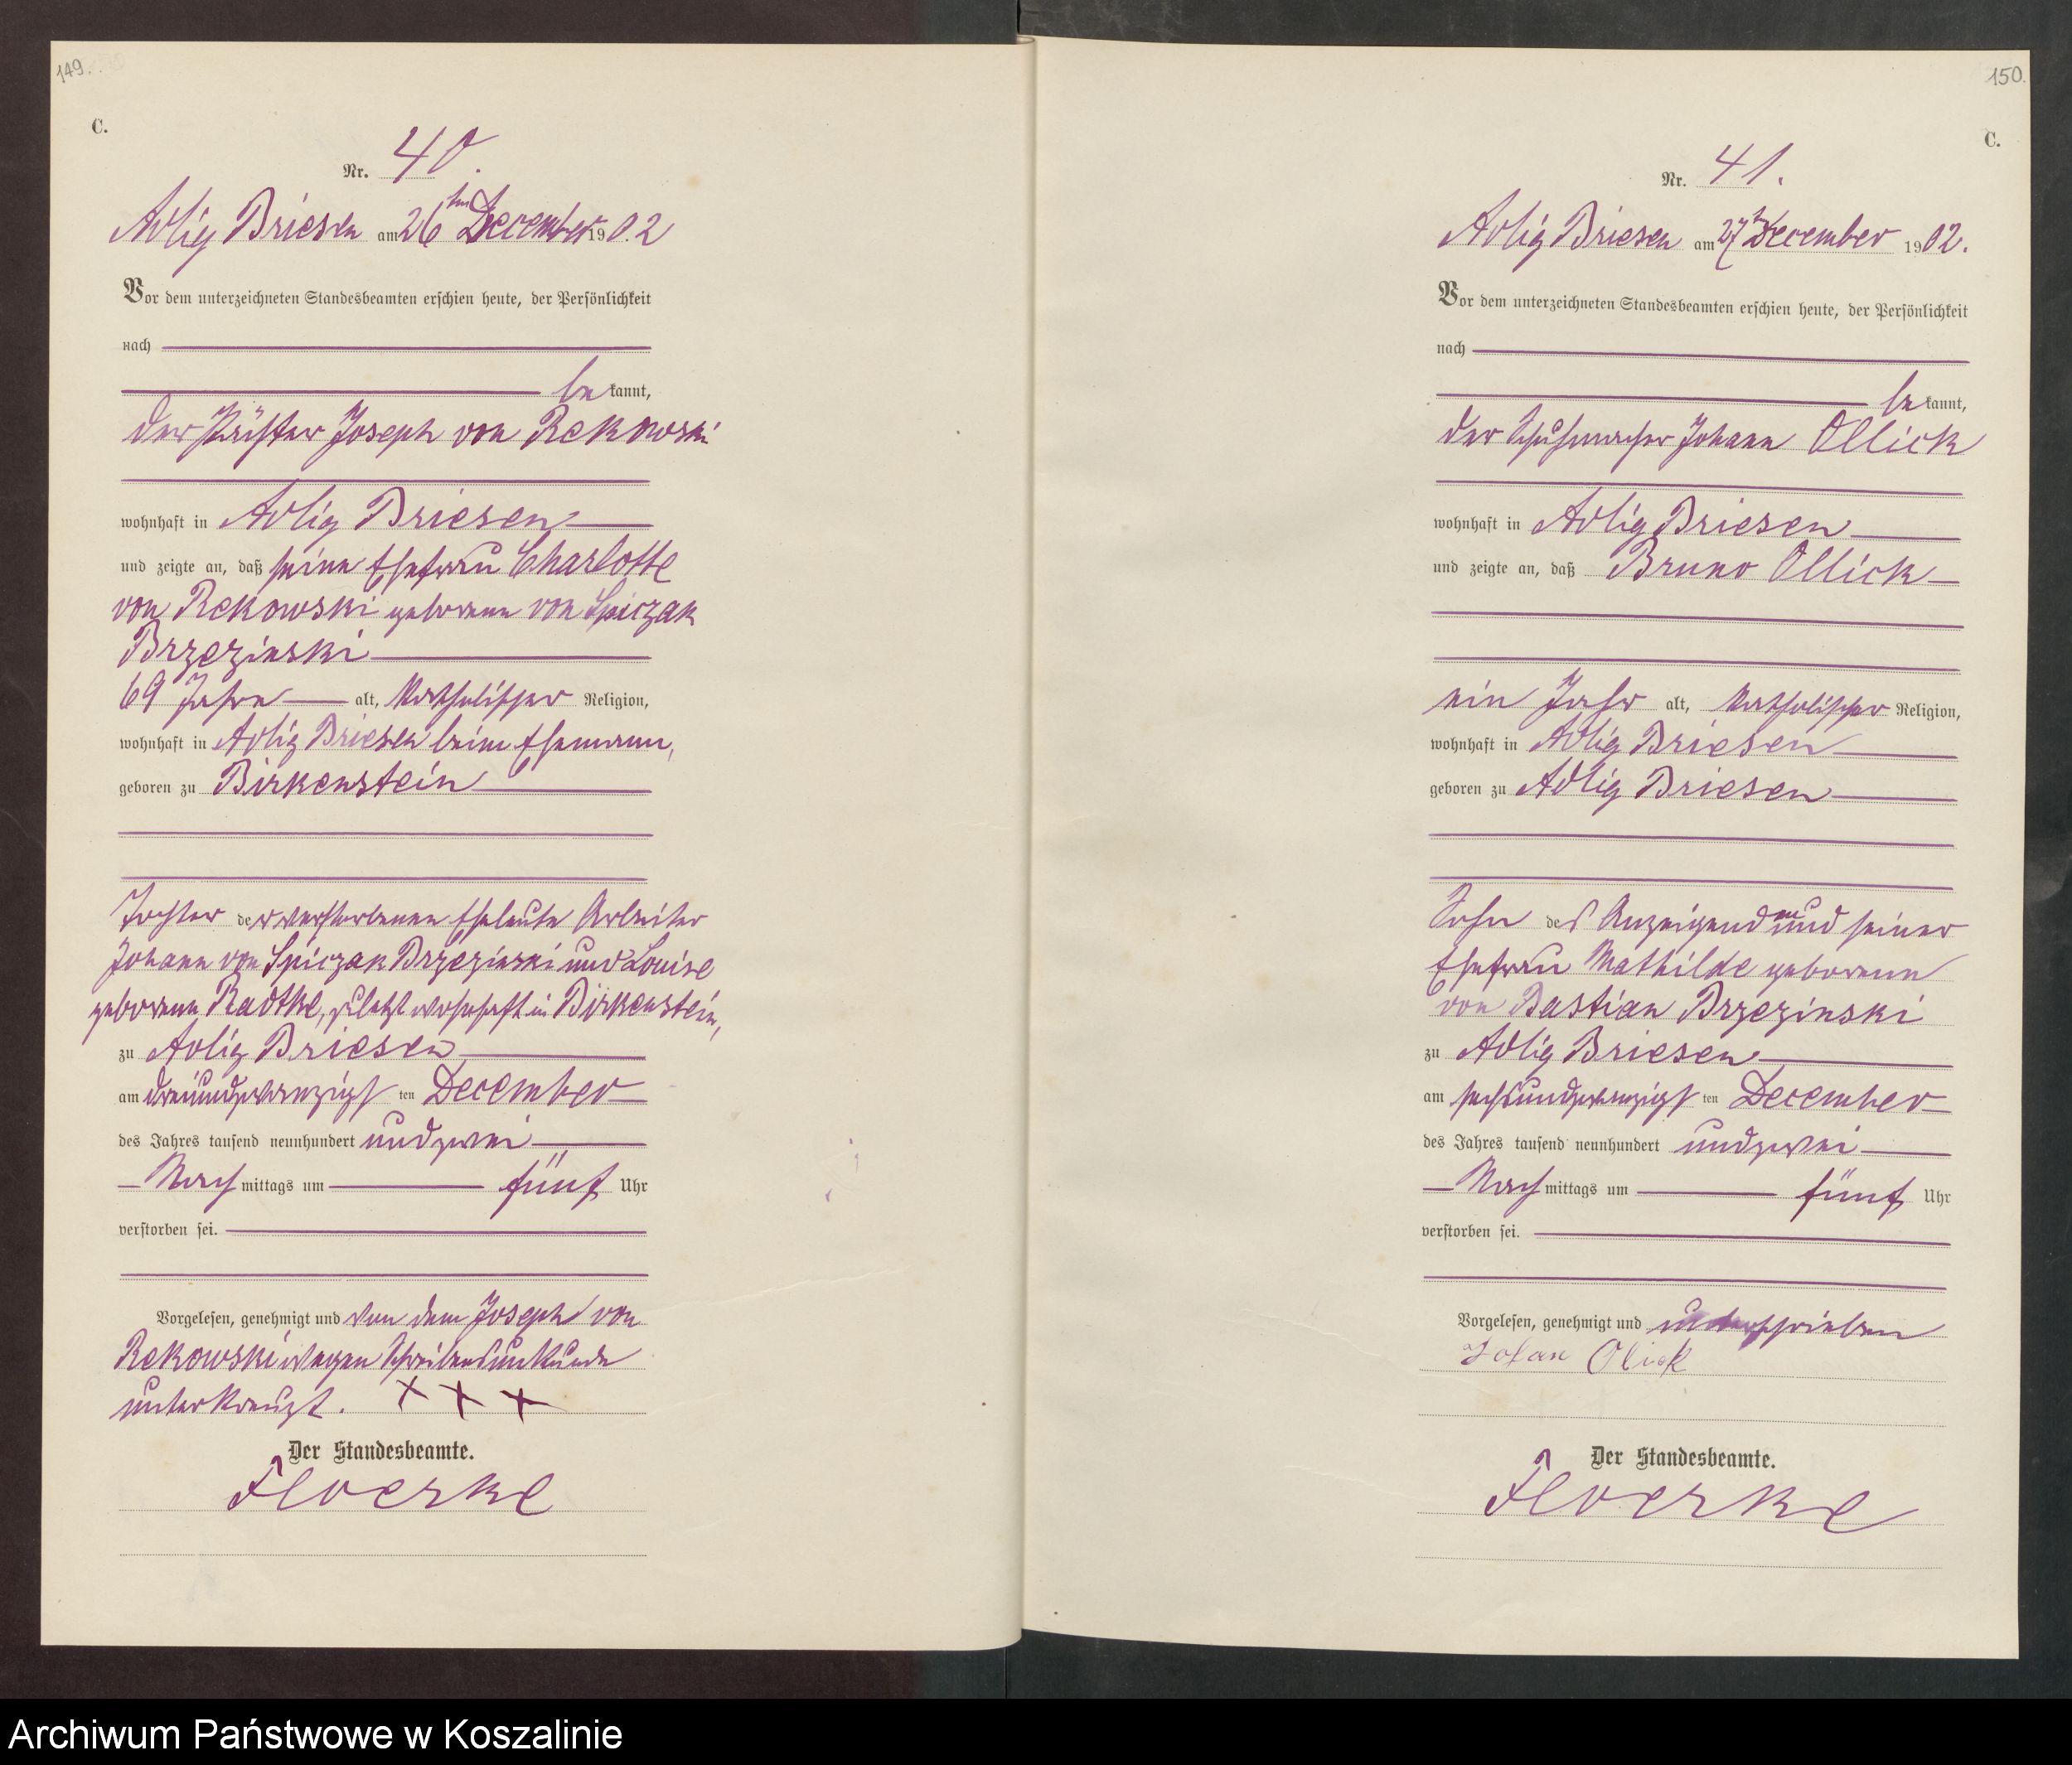 149.
C.
Nr. 40.
Adlig Briesen am 26ten December 1902
Vor dem unterzeichneten Standesbeamten erschien heute, der Persönlichkeit
nach
bekannt,
der Joseph von Rekowski
wohnhaft in Adlig Briesen
und zeigte an, daß seine Ehefrau Charlotte
von Rekowski geborene von Spiczak
Brzezinski
69 Jahre alt, katholischer Religion,
wohnhaft in Adlig Briesen beim Ehemann,
geboren zu Birkenstein
Tochter der verstorbenen Eheleute Arbeiter
Johann von Spiczak Brzezinski und Louise
geborene Radtke, zuletzt wohnhaft in Birkenstein,
zu Adlig Briesen
am dreiundzwanzigsten December
des Jahres tausend neunhundert undzwei
Nachmittags um fünf Uhr
verstorben sei.
Vorgelesen, genehmigt und von dem Joseph von
Rekowski wegen Schreibensunkunde
unterkreuzt. X X X
Der Standesbeamte.
Floerke
150.
C.
Nr. 41.
Adlig Briesen am 27ten December 1902.
Vor dem unterzeichneten Standesbeamten erschien heute, der Persönlichkeit
nach
bekannt,
der Schuhmacher Johann Ollick
wohnhaft in Adlig Briesen
und zeigte an, daß Bruno Ollick
ein Jahr alt, katholischer Religion,
wohnhaft in Adlig Briesen
geboren zu Adlig Briesen
Sohn des Anzeigenden und seiner
Ehefrau Mathilde geborenen
von Bastian Brzezinski
zu Adlig Briesen
am sechsundzwanzigsten December
des Jahres tausend neunhundert undzwei
Nachmittags um fünf Uhr
verstorben sei.
Vorgelesen, genehmigt und unterschrieben
Johan Olick
Der Standesbeamte.
Floerke
Archiwum Państwowe w Koszalinie